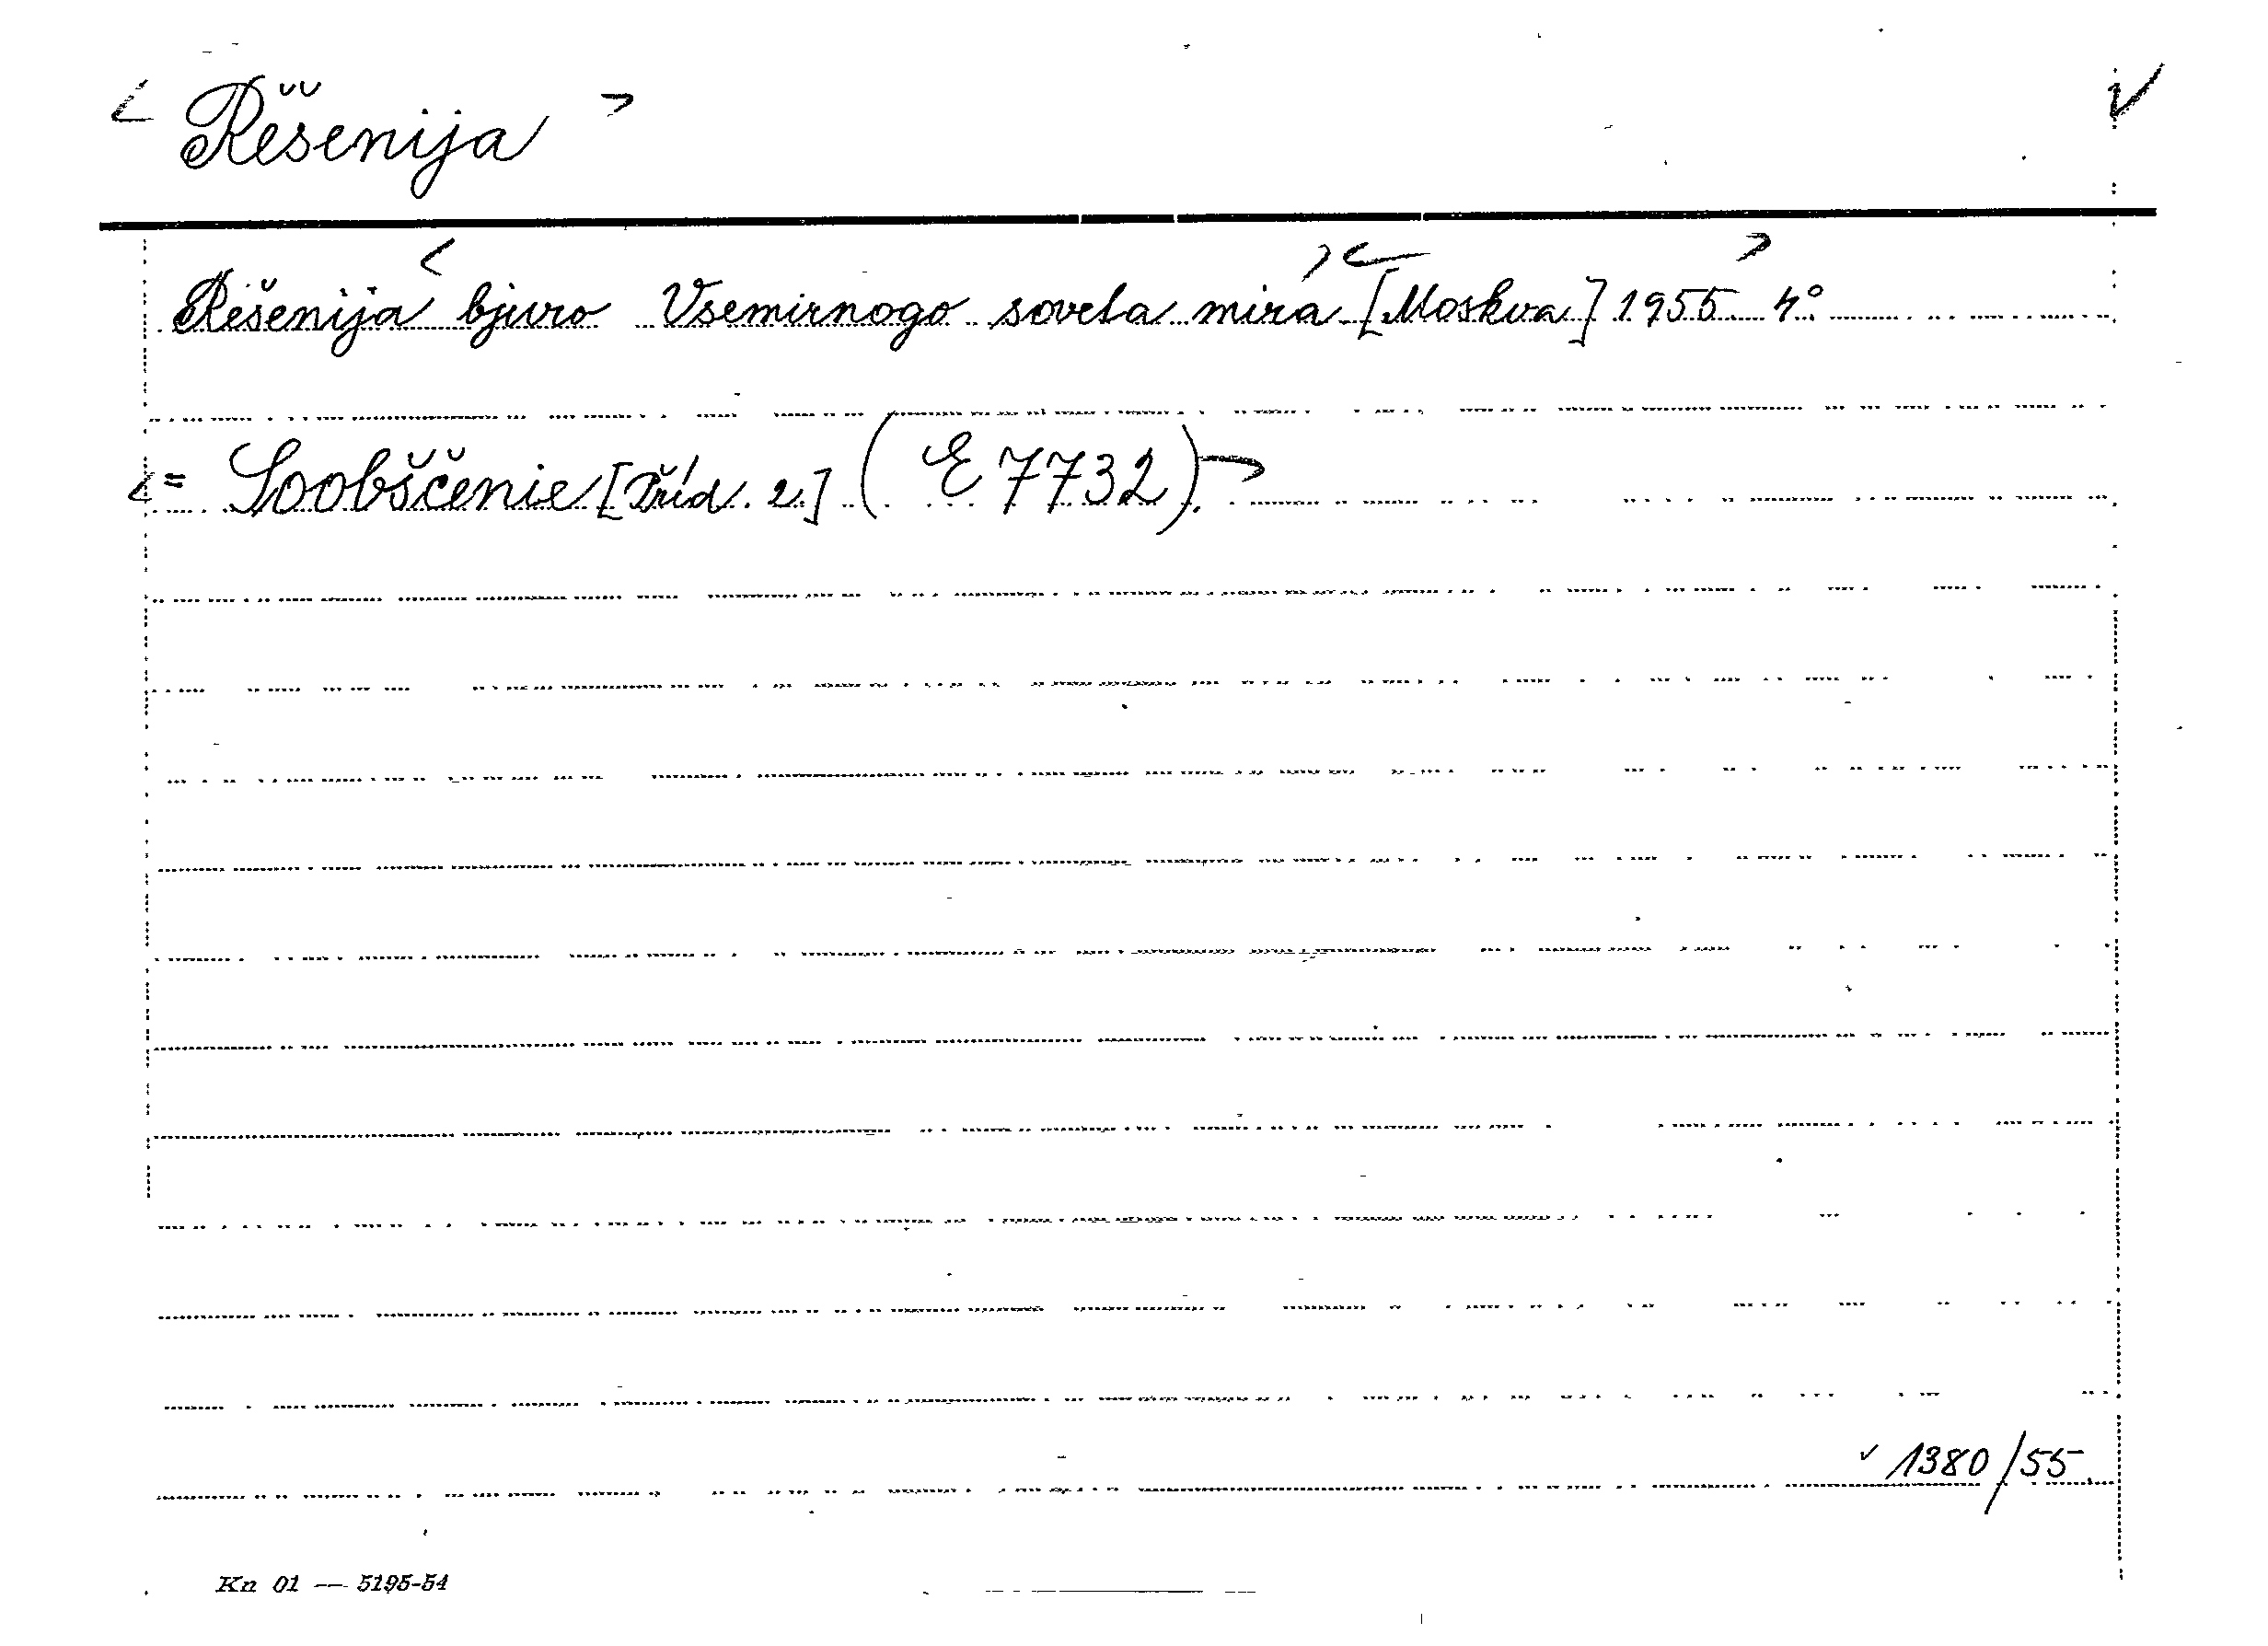 < Rěšenija > ✓
Rěšenija < bjuro Vsemirnogo soveta mira > < [Moskva] 1955 > 4°
< = Soobščenie [Příd. 2.] (E 7732). >
✓ 1380/55.
Kn 01 — 5195-54